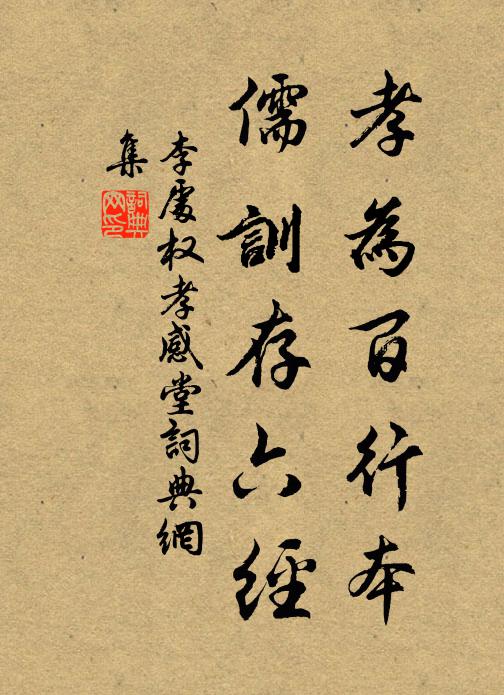 孝為百行本
儒訓存六經
李處权孝感堂詞典網
集
詞典
网印